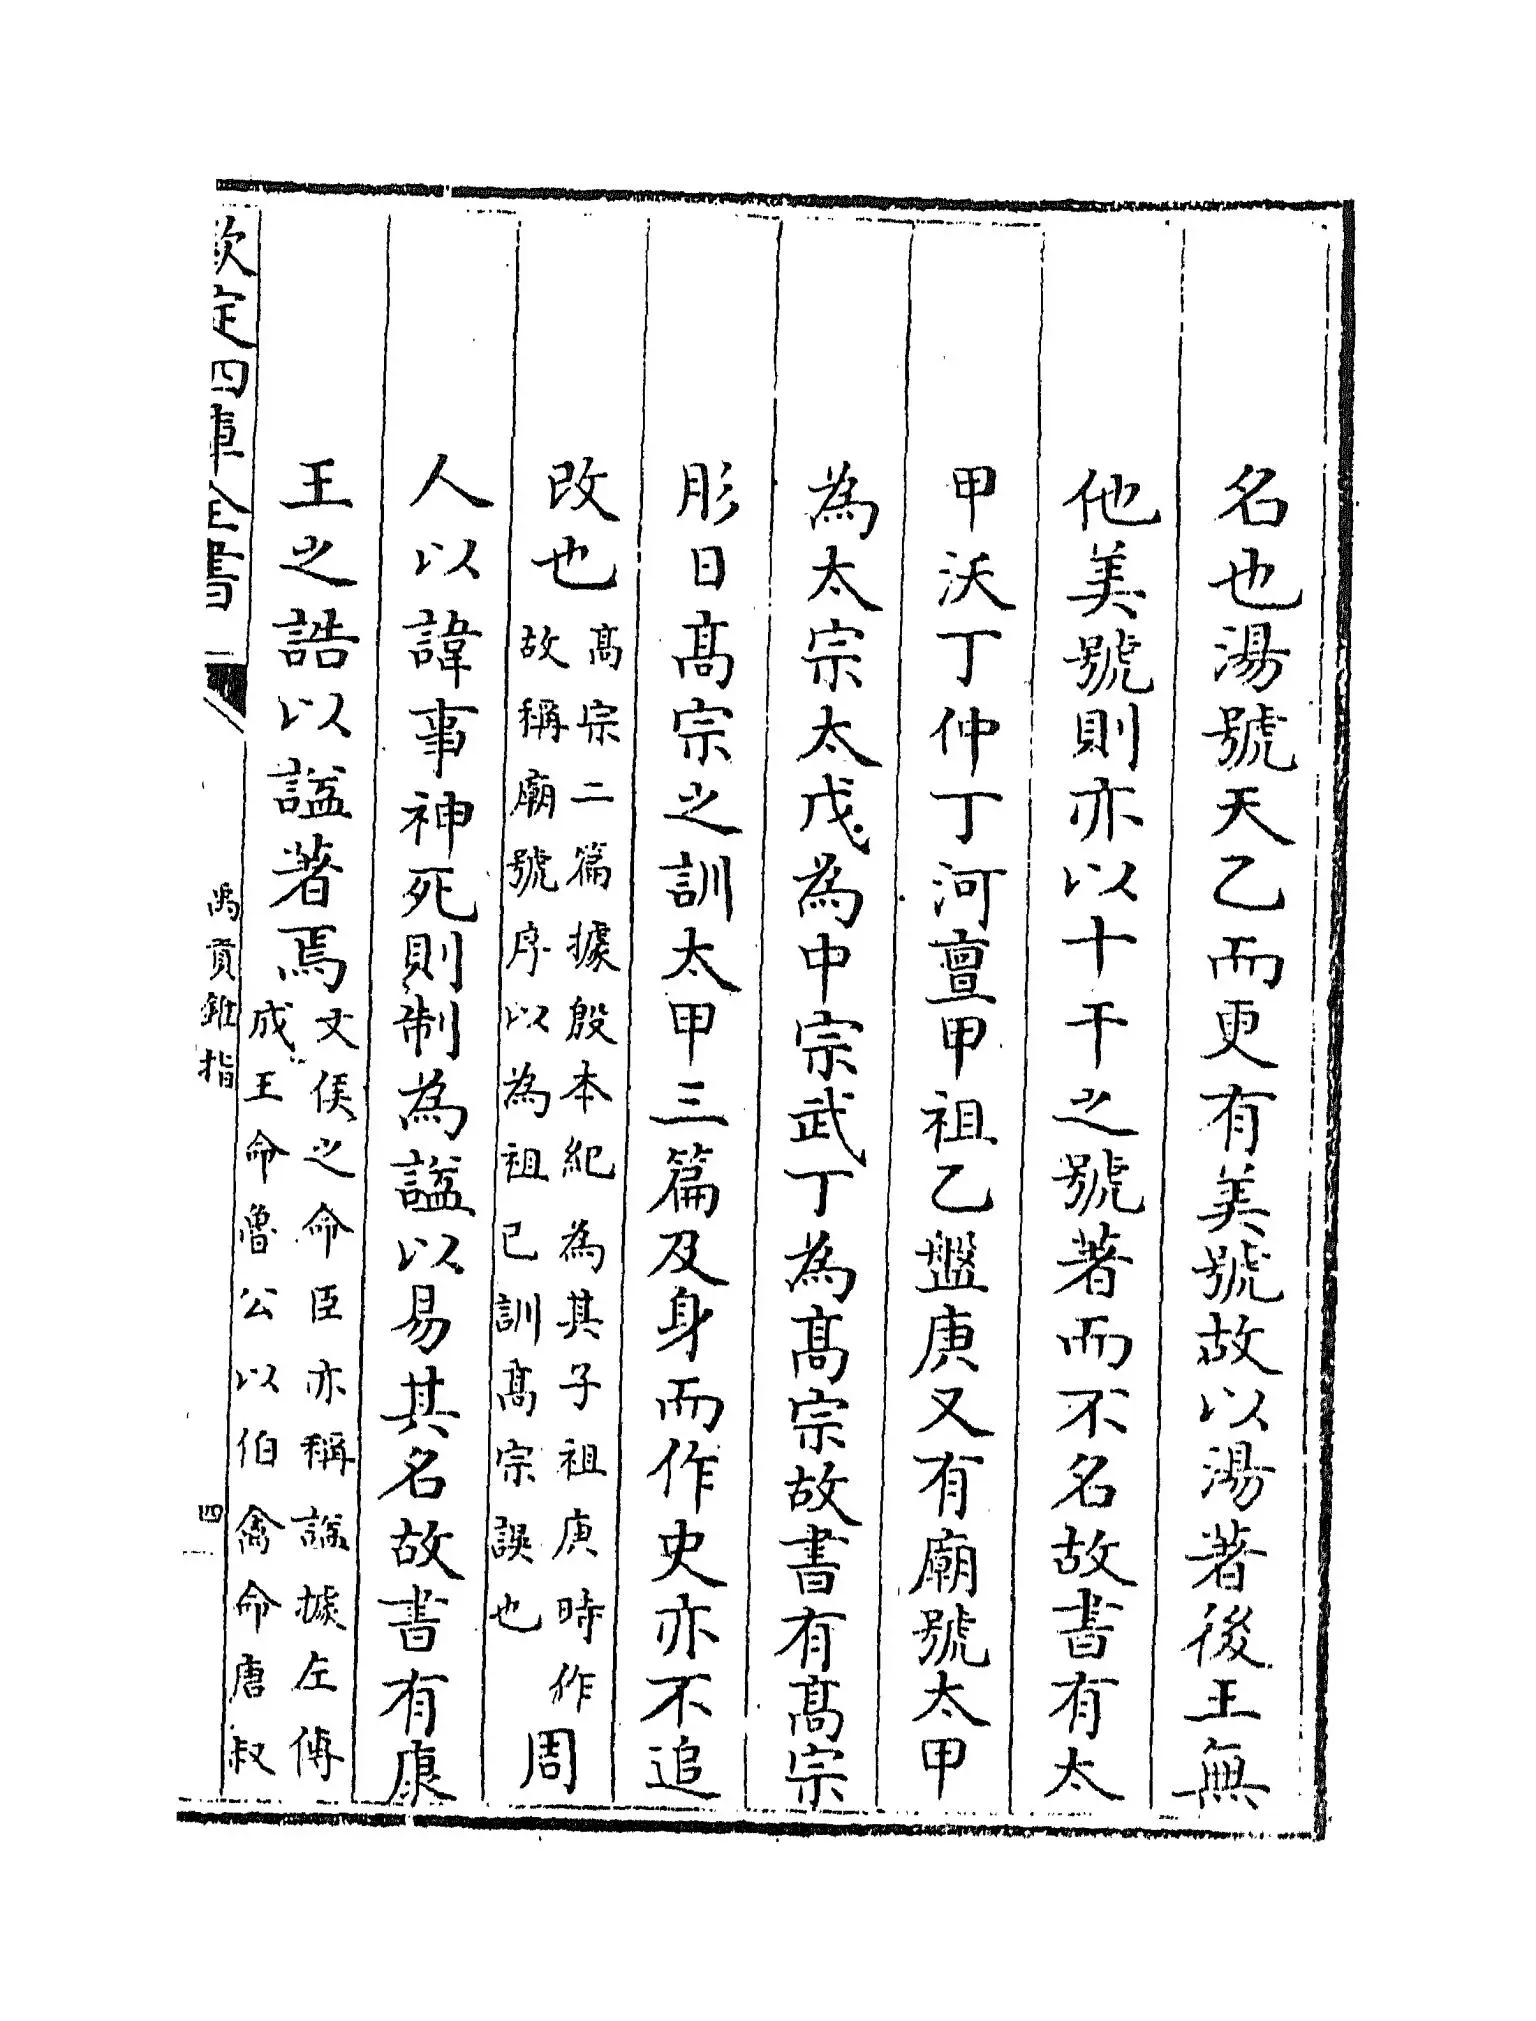 名也湯號天乙而更有美號故以湯著後王無
他美號則亦以十干之號著而不名故書有太
甲沃丁仲丁河亶甲祖乙盤庚又有廟號太甲
為太宗太戊為中宗武丁為髙宗故書有髙宗
肜日髙宗之訓太甲三篇及身而作史亦不追
改也髙宗二篇據殷本紀為其子祖庚時作故稱廟號序以為祖已訓髙宗誤也周
人以諱事神死則制為諡以易其名故書有康
王之誥以諡著焉文侯之命臣亦稱諡據左傳成王命魯公以伯禽命唐叔
欽定四庫全書
禹貢錐指
四